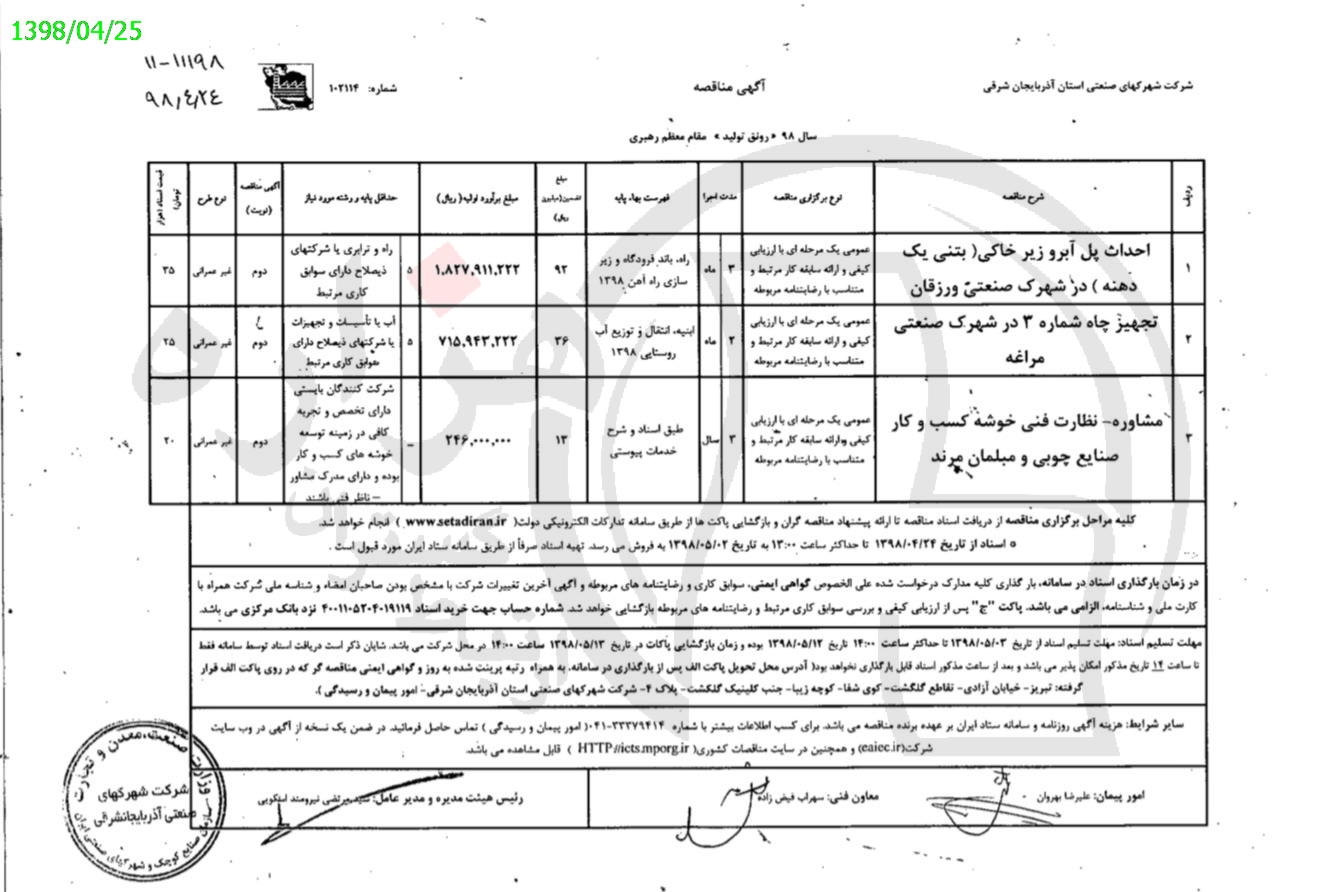 1398/04/25
۱۱-۱۱۱۹۸
۹۸,۴,۲۴
شرکت شهرکهای صنعتی استان آذربایجان شرقی
آگهی مناقصه
شماره: ۱۰۲۱۱۴
سال ۹۸ «رونق تولید» مقام معظم رهبری
ردیف
شرح مناقصه
نوع برگزاری مناقصه
مدت اجرا
فهرست بهاء پایه
مبلغ
تضمین(میلیون
ریال)
مبلغ برآورد اولیه( ریال)
حداقل پایه و رشته مورد نیاز
آگهی مناقصه
(نوبت)
نوع طرح
قیمت اسناد (هزار
تومان)
۱
احداث پل آبرو زیر خاکی( بتنی یک
دهنه ) در شهرک صنعتی ورزقان
عمومی یک مرحله ای با ارزیابی
کیفی و ارائه سابقه کار مرتبط و
متناسب با رضایتنامه مربوطه
۳
ماه
راه، باند فرودگاه و زیر
سازی راه آهن ۱۳۹۸
۹۲
۱،۸۲۷،۹۱۱،۲۲۲
۵
راه و ترابری یا شرکتهای
ذیصلاح دارای سوابق
کاری مرتبط
دوم
غیر عمرانی
۳۵
۲
تجهیز چاه شماره ۳ در شهرک صنعتی
مراغه
عمومی یک مرحله ای با ارزیابی
کیفی و ارائه سابقه کار مرتبط و
متناسب با رضایتنامه مربوطه
۲
ماه
ابنیه، انتقال و توزیع آب
روستایی ۱۳۹۸
۳۶
۷۱۵،۹۴۳،۲۲۲
۵
آب یا تأسیسات و تجهیزات
یا شرکتهای ذیصلاح دارای
سوابق کاری مرتبط
دوم
غیر عمرانی
۲۵
۳
مشاوره- نظارت فنی خوشه کسب و کار
صنایع چوبی و مبلمان مرند
عمومی یک مرحله ای با ارزیابی
کیفی وارائه سابقه کار مرتبط و
متناسب با رضایتنامه مربوطه
۳
سال
طبق اسناد و شرح
خدمات پیوستی
۱۳
۲۴۶،۰۰۰،۰۰۰
–
شرکت کنندگان بایستی
دارای تخصص و تجربه
کافی در زمینه توسعه
خوشه های کسب و کار
بوده و دارای مدرک مشاور
– ناظر فنی باشند
دوم
غیر عمرانی
۲۰
کلیه مراحل برگزاری مناقصه از دریافت اسناد مناقصه تا ارائه پیشنهاد مناقصه گران و بازگشایی پاکت ها از طریق سامانه تدارکات الکترونیکی دولت( www.setadiran.ir ) انجام خواهد شد.
¤ اسناد از تاریخ ۱۳۹۸/۰۴/۲۴ تا حداکثر ساعت ۱۳:۰۰ به تاریخ ۱۳۹۸/۰۵/۰۲ به فروش می رسد. تهیه اسناد صرفاً از طریق سامانه ستاد ایران مورد قبول است .
در زمان بارگذاری اسناد در سامانه، بار گذاری کلیه مدارک درخواست شده علی الخصوص گواهی ایمنی، سوابق کاری و رضایتنامه های مربوطه و آگهی آخرین تغییرات شرکت با مشخص بودن صاحبان امضاء و شناسه ملی شرکت همراه با
کارت ملی و شناسنامه، الزامی می باشد. پاکت "ج" پس از ارزیابی کیفی و بررسی سوابق کاری مرتبط و رضایتنامه های مربوطه بازگشایی خواهد شد. شماره حساب جهت خرید اسناد ۴۰۰۱۱۰۵۲۰۴۰۱۹۱۱۹ نزد بانک مرکزی می باشد.
مهلت تسلیم اسناد: مهلت تسلیم اسناد از تاریخ ۱۳۹۸/۰۵/۰۳ تا حداکثر ساعت ۱۴:۰۰ تاریخ ۱۳۹۸/۰۵/۱۲ بوده و زمان بازگشایی پاکات در تاریخ ۱۳۹۸/۰۵/۱۳ ساعت ۱۴:۰۰ در محل شرکت می باشد. شایان ذکر است دریافت اسناد توسط سامانه فقط
تا ساعت ۱۴ تاریخ مذکور امکان پذیر می باشد و بعد از ساعت مذکور اسناد قابل بارگذاری نخواهد بود( آدرس محل تحویل پاکت الف پس از بارگذاری در سامانه، به همراه رتبه پرینت شده به روز و گواهی ایمنی مناقصه گر که در روی پاکت الف قرار
گرفته: تبریز- خیابان آزادی- تقاطع گلگشت- کوی شفا- کوچه زیبا- جنب کلینیک گلگشت- پلاک ۴- شرکت شهرکهای صنعتی استان آذربایجان شرقی- امور پیمان و رسیدگی ).
سایر شرایط: هزینه آگهی روزنامه و سامانه ستاد ایران بر عهده برنده مناقصه می باشد. برای کسب اطلاعات بیشتر با شماره ۳۳۳۷۹۴۱۴-۰۴۱( امور پیمان و رسیدگی ) تماس حاصل فرمائید. در ضمن یک نسخه از آگهی در وب سایت
شرکت(eaiec.ir) و همچنین در سایت مناقصات کشوری( HTTP//icts.mporg.ir ) قابل مشاهده می باشد.
امور پیمان: علیرضا بهروان
معاون فنی: سهراب فیض زاده
رئیس هیئت مدیره و مدیر عامل: سید مرتضی نیرومند اسکویی
وزارت صنعت، معدن و تجارت
شرکت شهرکهای
صنعتی آذربایجانشرقی
سازمان صنایع کوچک و شهرکهای صنعتی ایران
هزاره